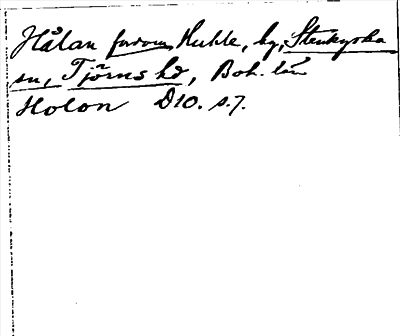 Hålan, farom, Huhle, by, Stenkyrka
sn, Tjörns hd, Boh. län
Holon D10. s.7.